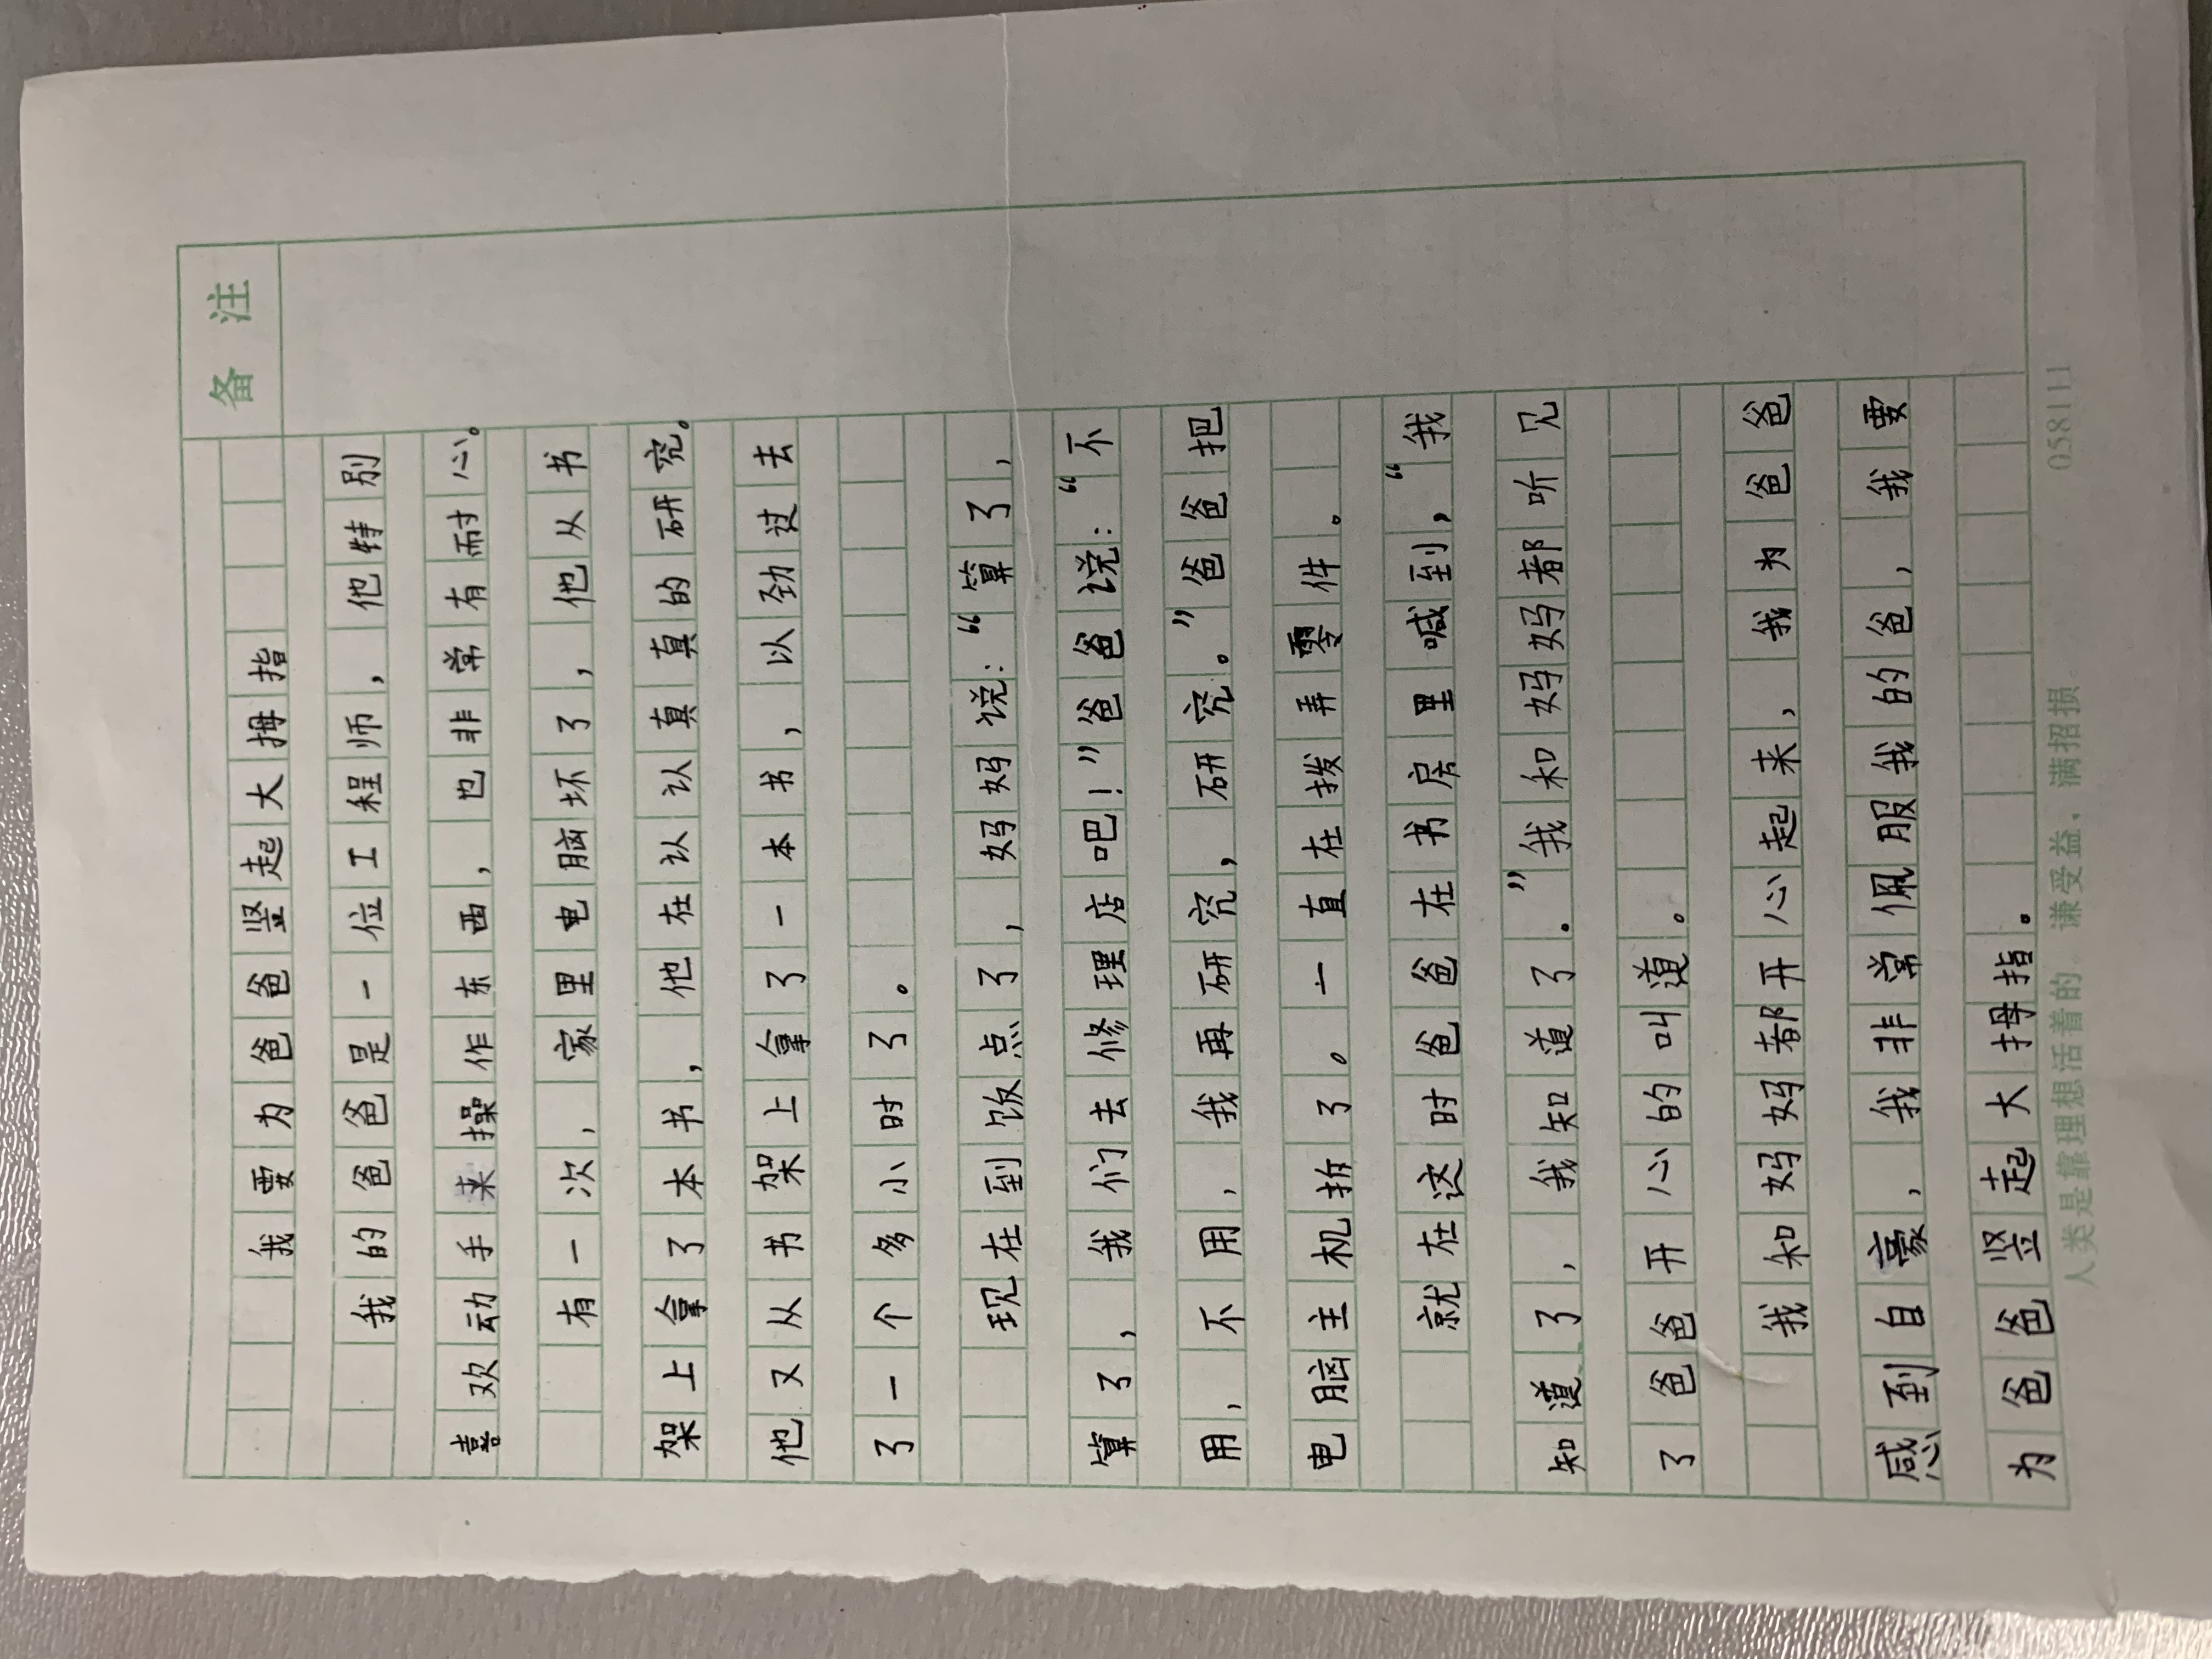 备 注
我要为爸爸竖起大拇指
我的爸爸是一位工程师，他特别
喜欢动手来操作东西，也非常有耐心。
有一次，家里电脑坏了，他从书
架上拿了本书，他在认认真真的研究。
他又从书架上拿了一本书，以劲过去
了一个多小时了。
现在到饭点了，妈妈说：“算了，
算了，我们去修理店吧！”爸爸说：“不
用，不用，我再研究，研究。”爸爸把
电脑主机拆了。一直在拨弄零件。
就在这时爸爸在书房里喊到，“我
知道了，我知道了。”我和妈妈都听见
了爸爸开心的叫道。
我和妈妈都开心起来，我为爸爸
感到自豪，我非常佩服我的爸，我要
为爸爸竖起大拇指。
人类是靠理想活着的。谦受益，满招损。 058111